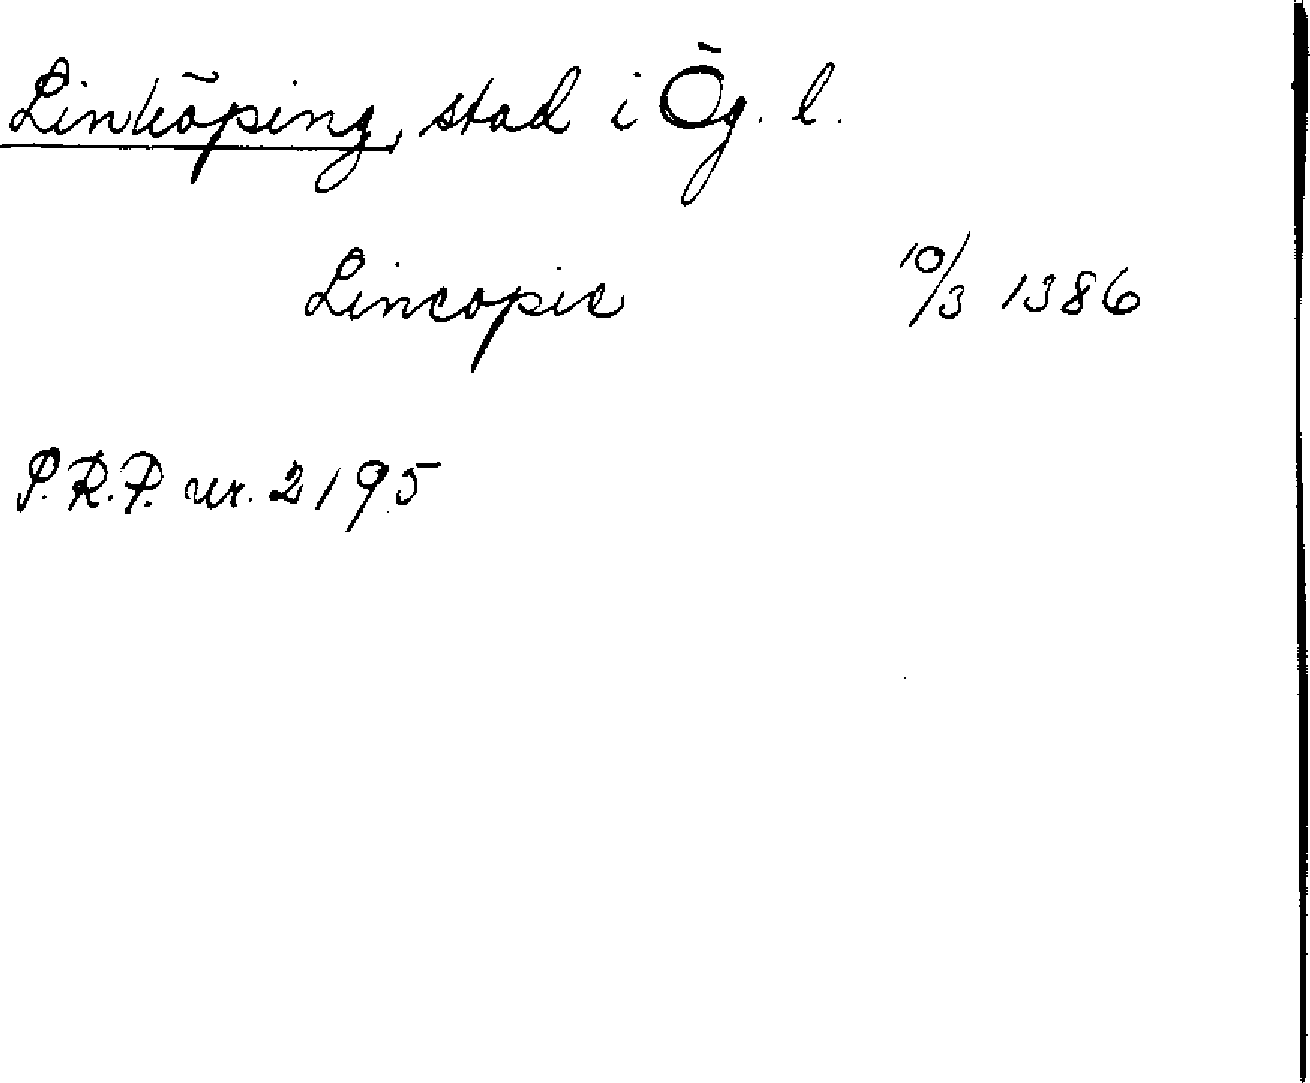 Linköping, stad i Ög. l.
Lincopie 10/3 1386
P.R.P. nr. 2195